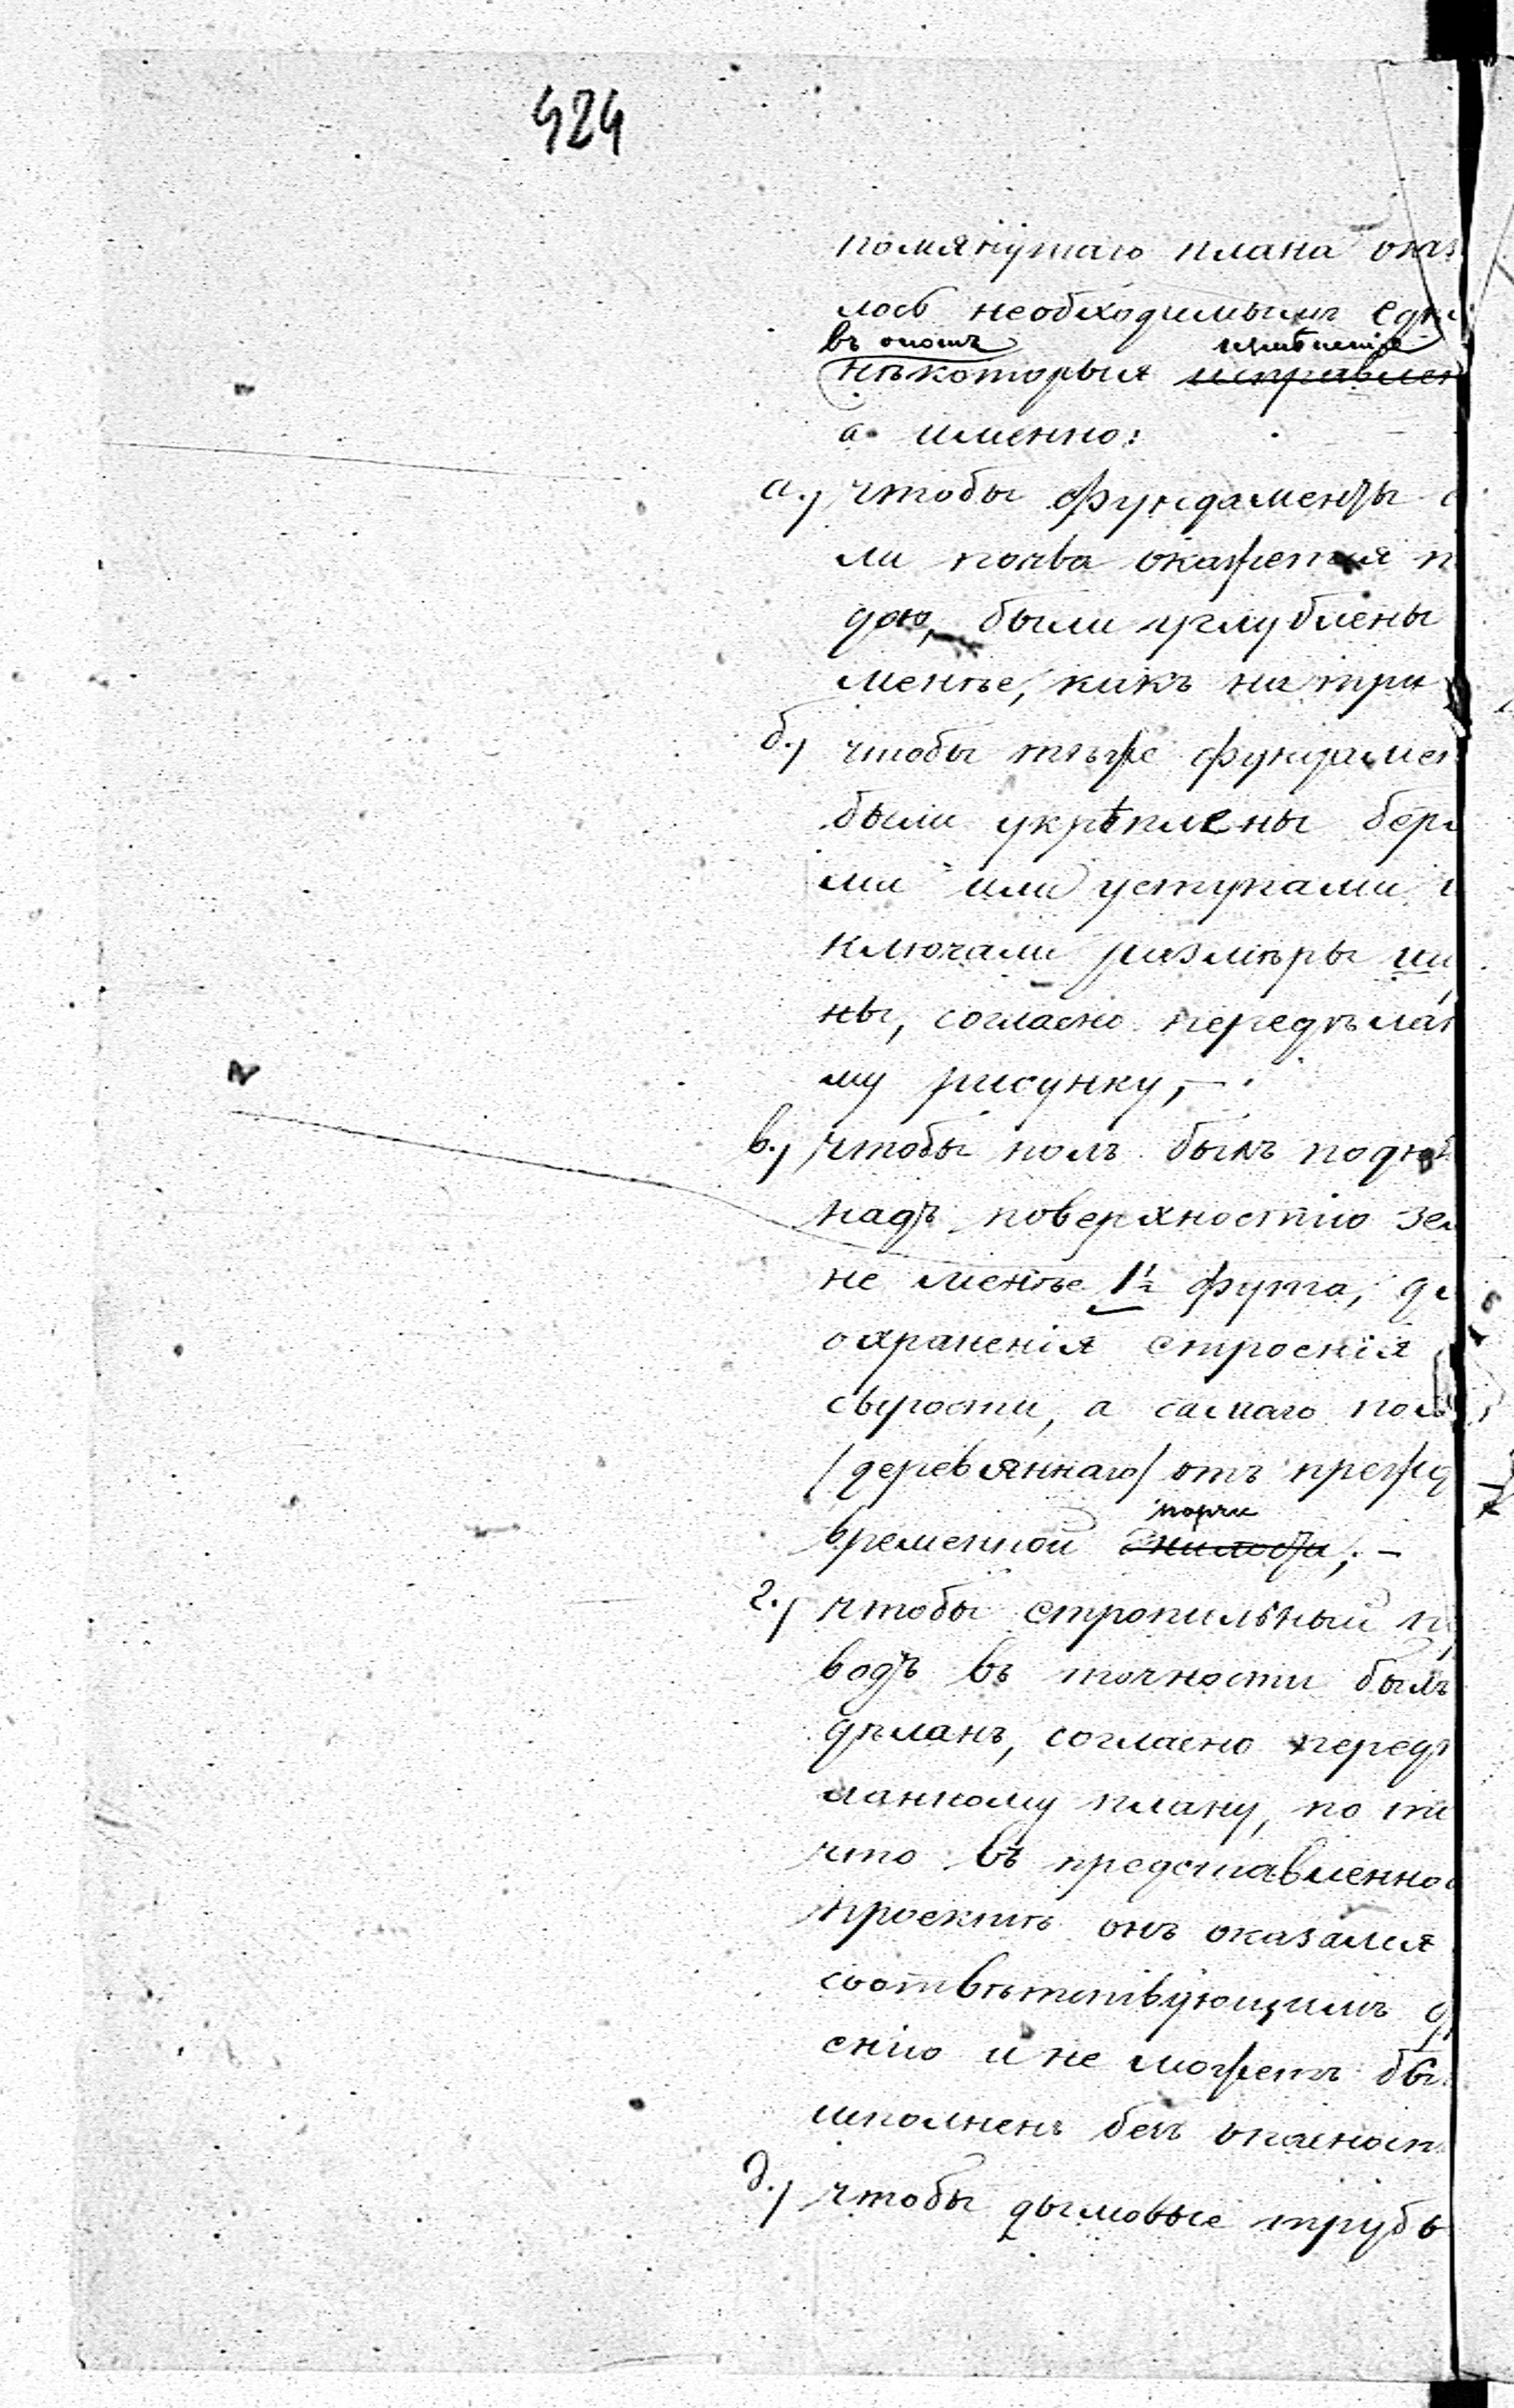 424
помянутаго плана оказ
лось необходимымъ сдѣ
въ ономъ измѣненія
нѣкоторыя исправлен
а именно:
а., чтобы фундаменты
ли почва окажется
дою, были углублены
менѣе, какъ на три
б., чтобы тѣже фундамен
были укрѣплены бер
ми или уступами
ключали размѣры
ны, согласно передѣлан
му рисунку, —
в., чтобы полъ былъ подня
надъ поверхностію зем
не менѣе 1½ фута, дл
охраненія строенія
сырости, а самаго пол
/деревяннаго/ отъ прежд
порчи
временной гнилости; —
г., чтобы стропильный
водъ въ точности былъ
дѣланъ, согласно передѣ
ланному плану, по
что въ представленно
проектѣ онъ оказался
соотвѣтствующимъ
енію и не можетъ бы
исполненъ безъ опасност
д., чтобы дымовые трубы